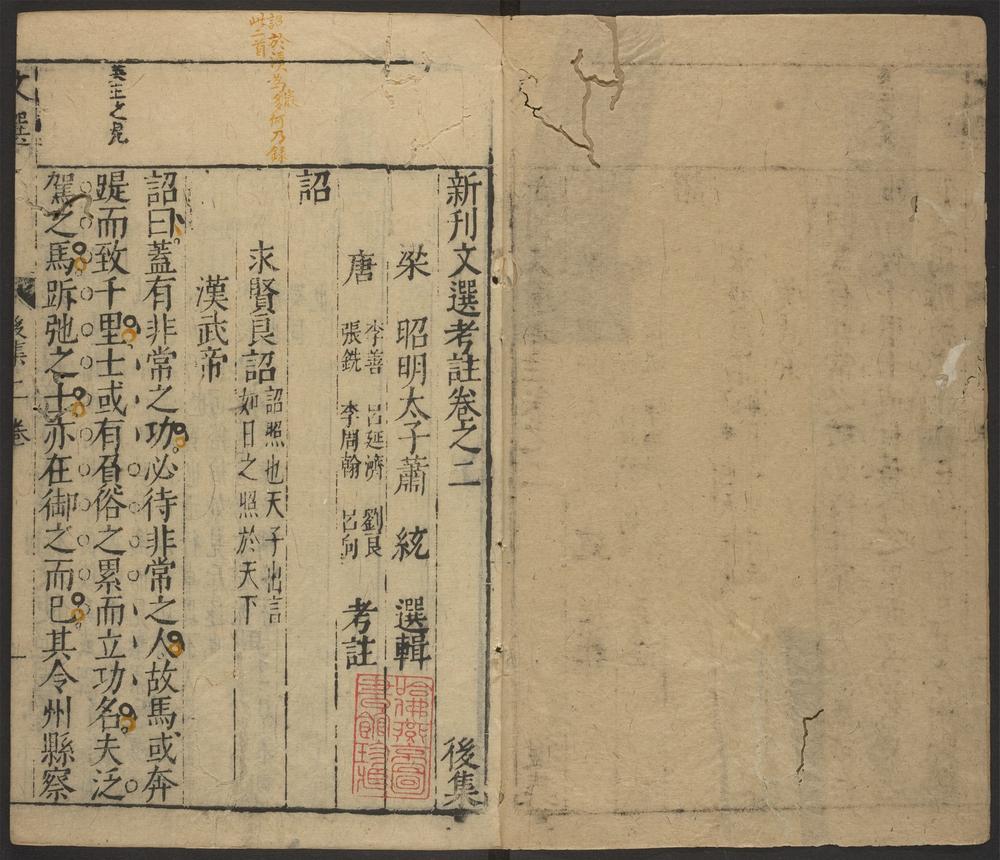 新刊文選考註卷之二
後集
梁 昭明太子蕭 統 選輯
唐 李善 呂延濟 劉良
張銑 李周翰 呂向 考註
詔
求賢良詔 詔照也天子出言
如日之照於天下
漢武帝
詔曰蓋有非常之功必待非常之人故馬或奔
踶而致千里士或有負俗之累而立功名夫泛
駕之馬跅弛之士亦在御之而已其令州縣察
文選
後集二卷
一
此二首
哈佛燕京圖
書館珍藏